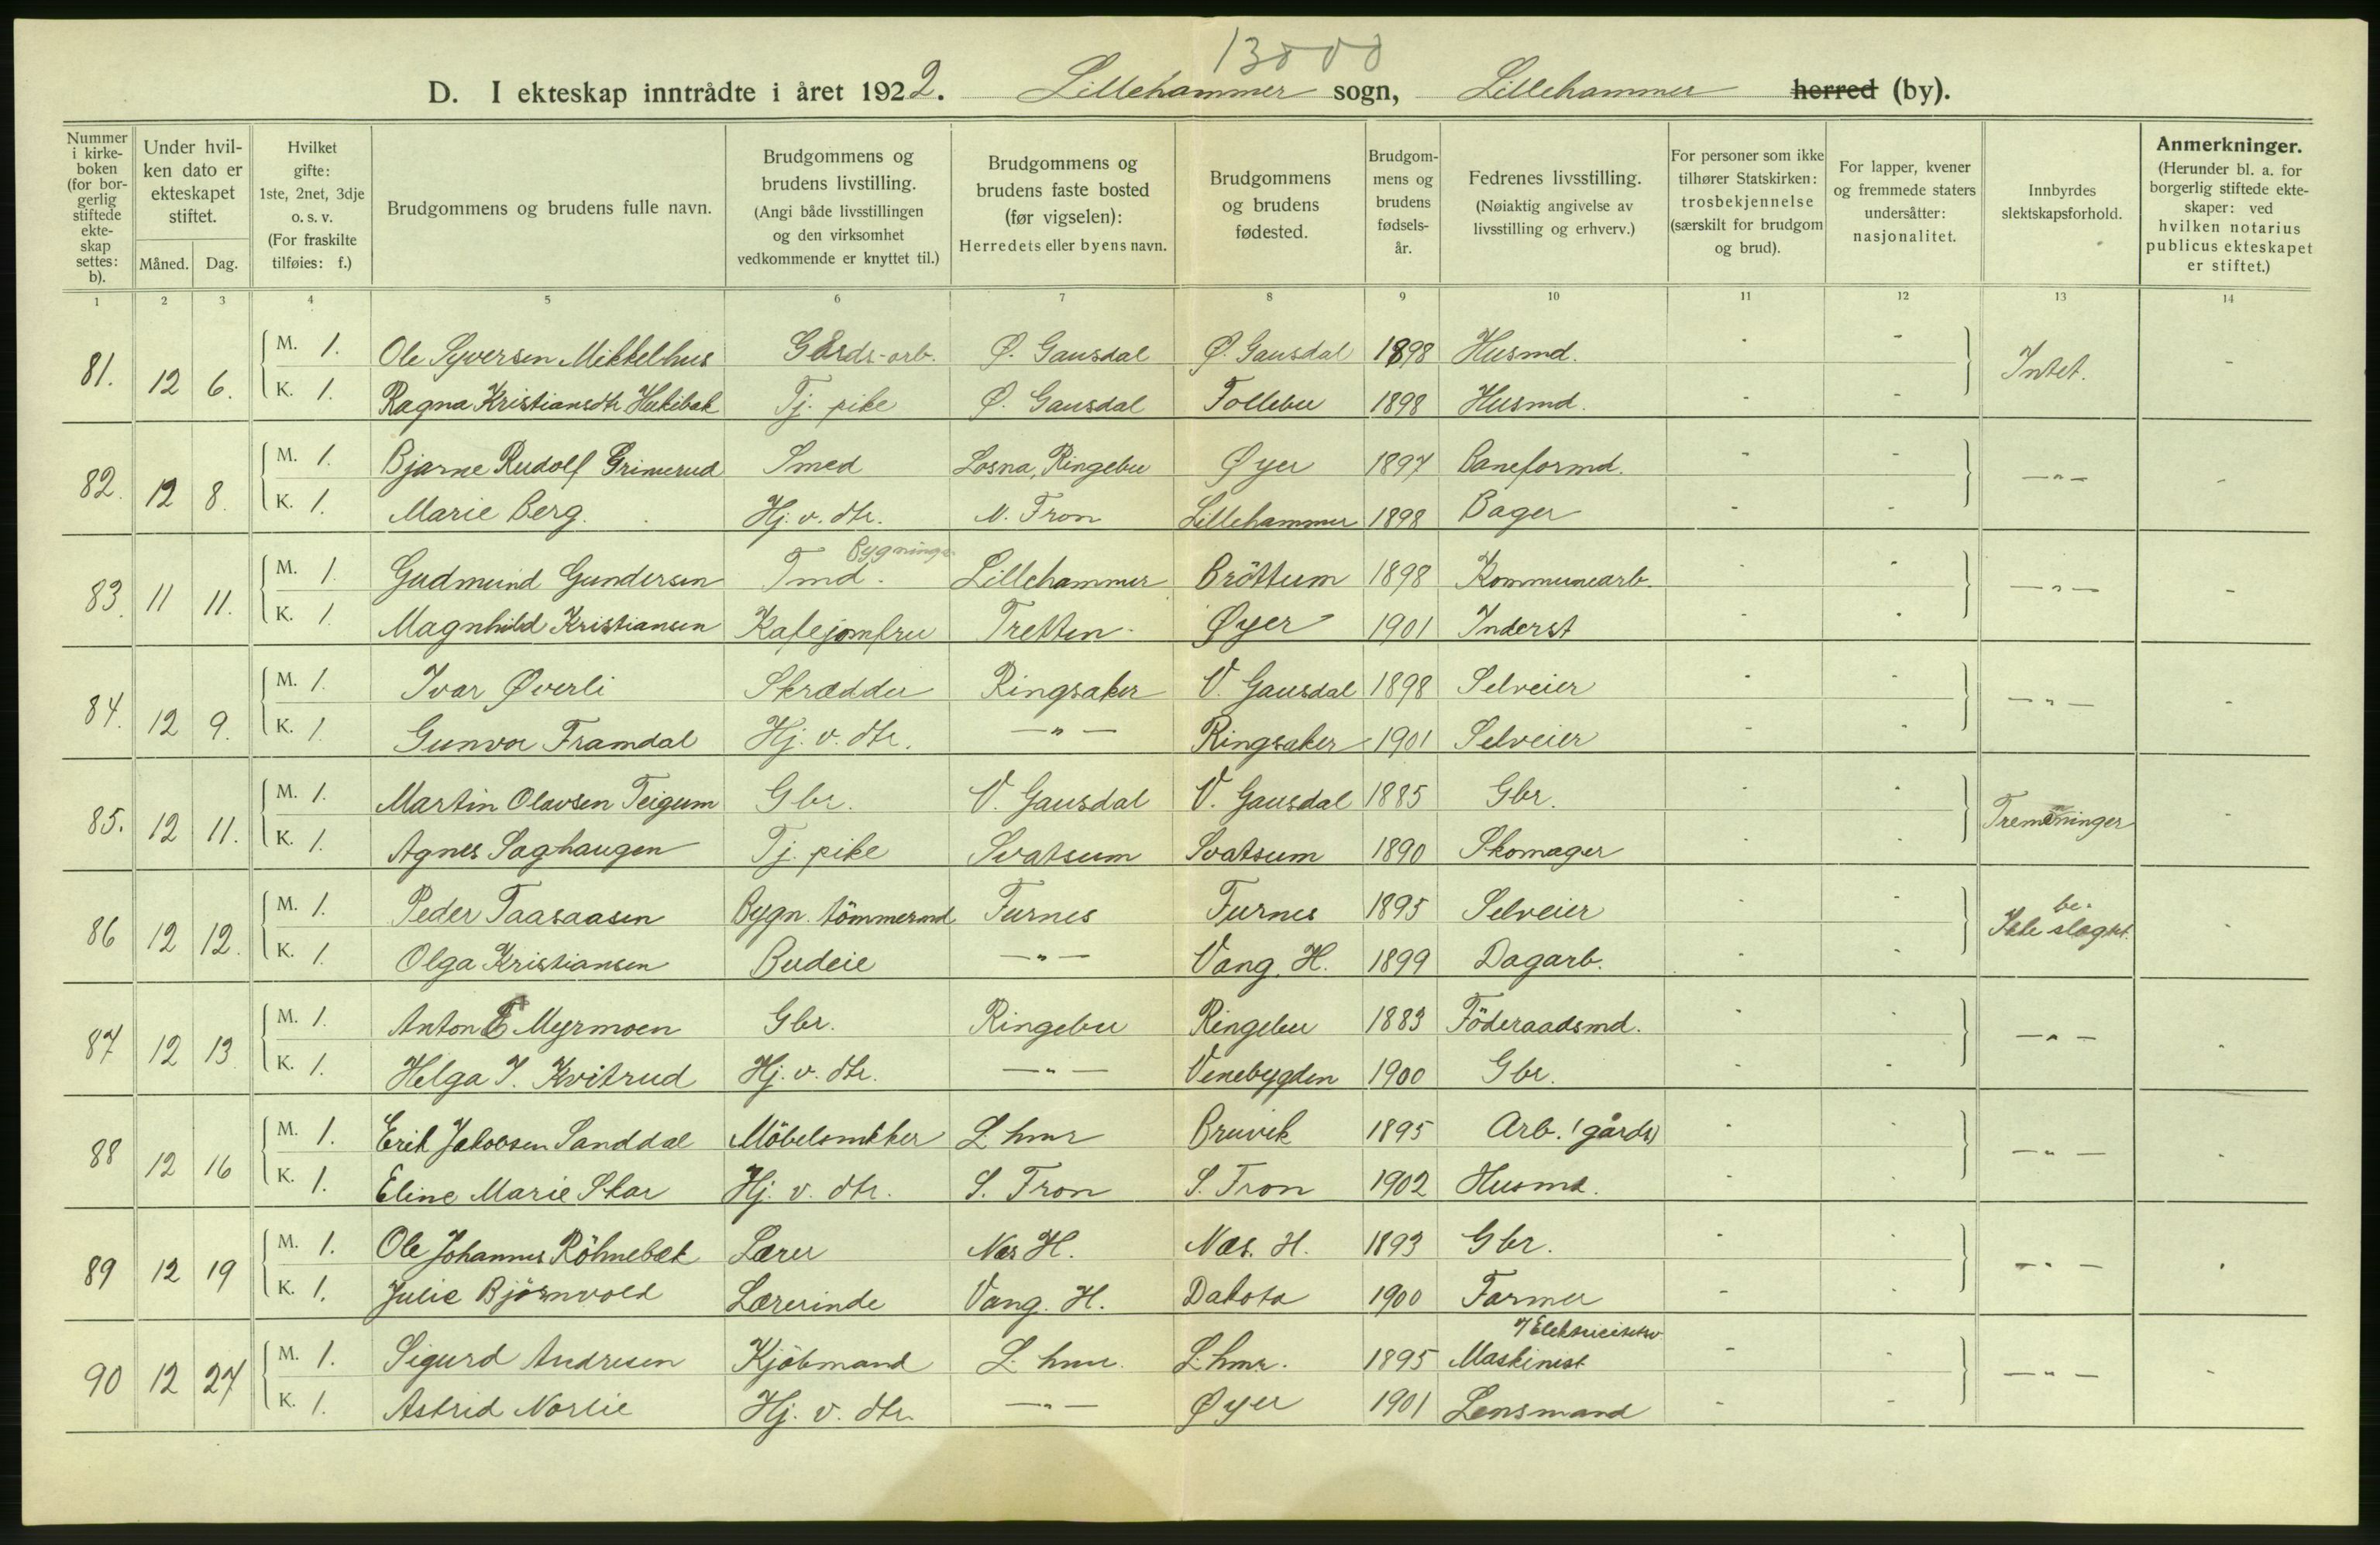 13000
D. I ekteskap inntrådte i året 1922. Lillehammer sogn, Lillehammer herred (by).
Nummer i kirke-boken (for bor-gerlig stiftede ekte-skap settes: b).
Under hvil-ken dato er ekteskapet stiftet.
Måned. Dag.
Hvilket gifte: 1ste, 2net, 3dje o. s. v. (For fraskilte tilføies: f.)
Brudgommens og brudens fulle navn.
Brudgommens og brudens livstilling. (Angi både livsstillingen og den virksomhet vedkommende er knyttet til.)
Brudgommens og brudens faste bosted (før vigselen): Herredets eller byens navn.
Brudgommens og brudens fødested.
Brudgom-mens og brudens fødsels-år.
Fedrenes livsstilling. (Nøiaktig angivelse av livsstilling og erhverv.)
For personer som ikke tilhører Statskirken: trosbekjennelse (særskilt for brudgom og brud).
For lapper, kvener og fremmede staters undersåtter: nasjonalitet.
Innbyrdes slektskapsforhold.
Anmerkninger. (Herunder bl. a. for borgerlig stiftede ekte-skaper: ved hvilken notarius publicus ekteskapet er stiftet.)
1 2 3 4 5 6 7 8 9 10 11 12 13 14
81. 12 6. M. 1. Ole Syversen Mikkelhus Gårds-arb. Ø. Gausdal Ø. Gausdal 1898 Husmd. - - Intet. -
K. 1. Ragna Kristiansdtr Tj. pike Ø. Gausdal Follebu 1898 Husmd. - -
82. 12 8. M. 1. Bjarne Rudolf Grimerud Smed Losna, Ringebu Øyer 1897 Baneformd. - - —"— -
K. 1. Marie Berg. Hj. v. dtr. N. Fron Lillehammer 1898 Bager - -
Bygnings
83. 11 11. M. 1. Gudmund Gundersen Tmd. Lillehammer Bröttum 1898 Kommunearb. - - —"— -
K. 1. Magnhild Kristiansen Kafejomfru Tretten Øyer 1901 Inderst - -
84. 12 9. M. 1. Ivar Øverli Skrædder Ringsaker V. Gausdal 1898 Selveier - - —"— -
K. 1. Gunvor Framdal Hj. v. dtr. —"— Ringsaker 1901 Selveier - -
85. 12 11. M. 1. Martin Olavsen Teigum Gbr. V. Gausdal V. Gausdal 1885 Gbr. - - Tremenninger -
K. 1. Agnes Saghaugen Tj. pike Svatsum Svatsum 1890 Skomager - -
86 12 12. M. 1. Peder Taasaasen Bygn. tömmermd Furnes Furnes 1895 Selveier - - Ikke beslægtet. -
K. 1. Olga Kristiansen Budeie —"— Vang. H. 1899 Dagarb. - -
87 12 13 M. 1. Anton Myrmoen Gbr. Ringebu Ringebu 1883 Föderaadsmd. - - —"— -
K. 1. Helga J. Kvitrud Hj. v. dtr. —"— Venebygden 1900 Gbr. - -
88 12 16 M. 1. Erik Jakobsen Sanddal Möbelsnekker L.hmr Bruvik 1895 Arb. (gårds) - - —"— -
K. 1. Eline Marie Skar Hj. v. dtr. S. Fron S. Fron 1902 Husmd. - -
89 12 19 M. 1. Ole Johannes Röhnebæk Lærer Nes H. Nes. H. 1893 Gbr. - - —"— -
K. 1. Julie Björnvold Lærerinde Vang. H. Dakota 1900 Farmer - -
90 12 27 M. 1. Sigurd Andresen Kjöbmand L.hmr. L.hmr. 1895 Maskinist - - —"— -
K. 1. Astrid Norlie Hj. v. dtr. —"— Øyer 1901 Lensmand - -